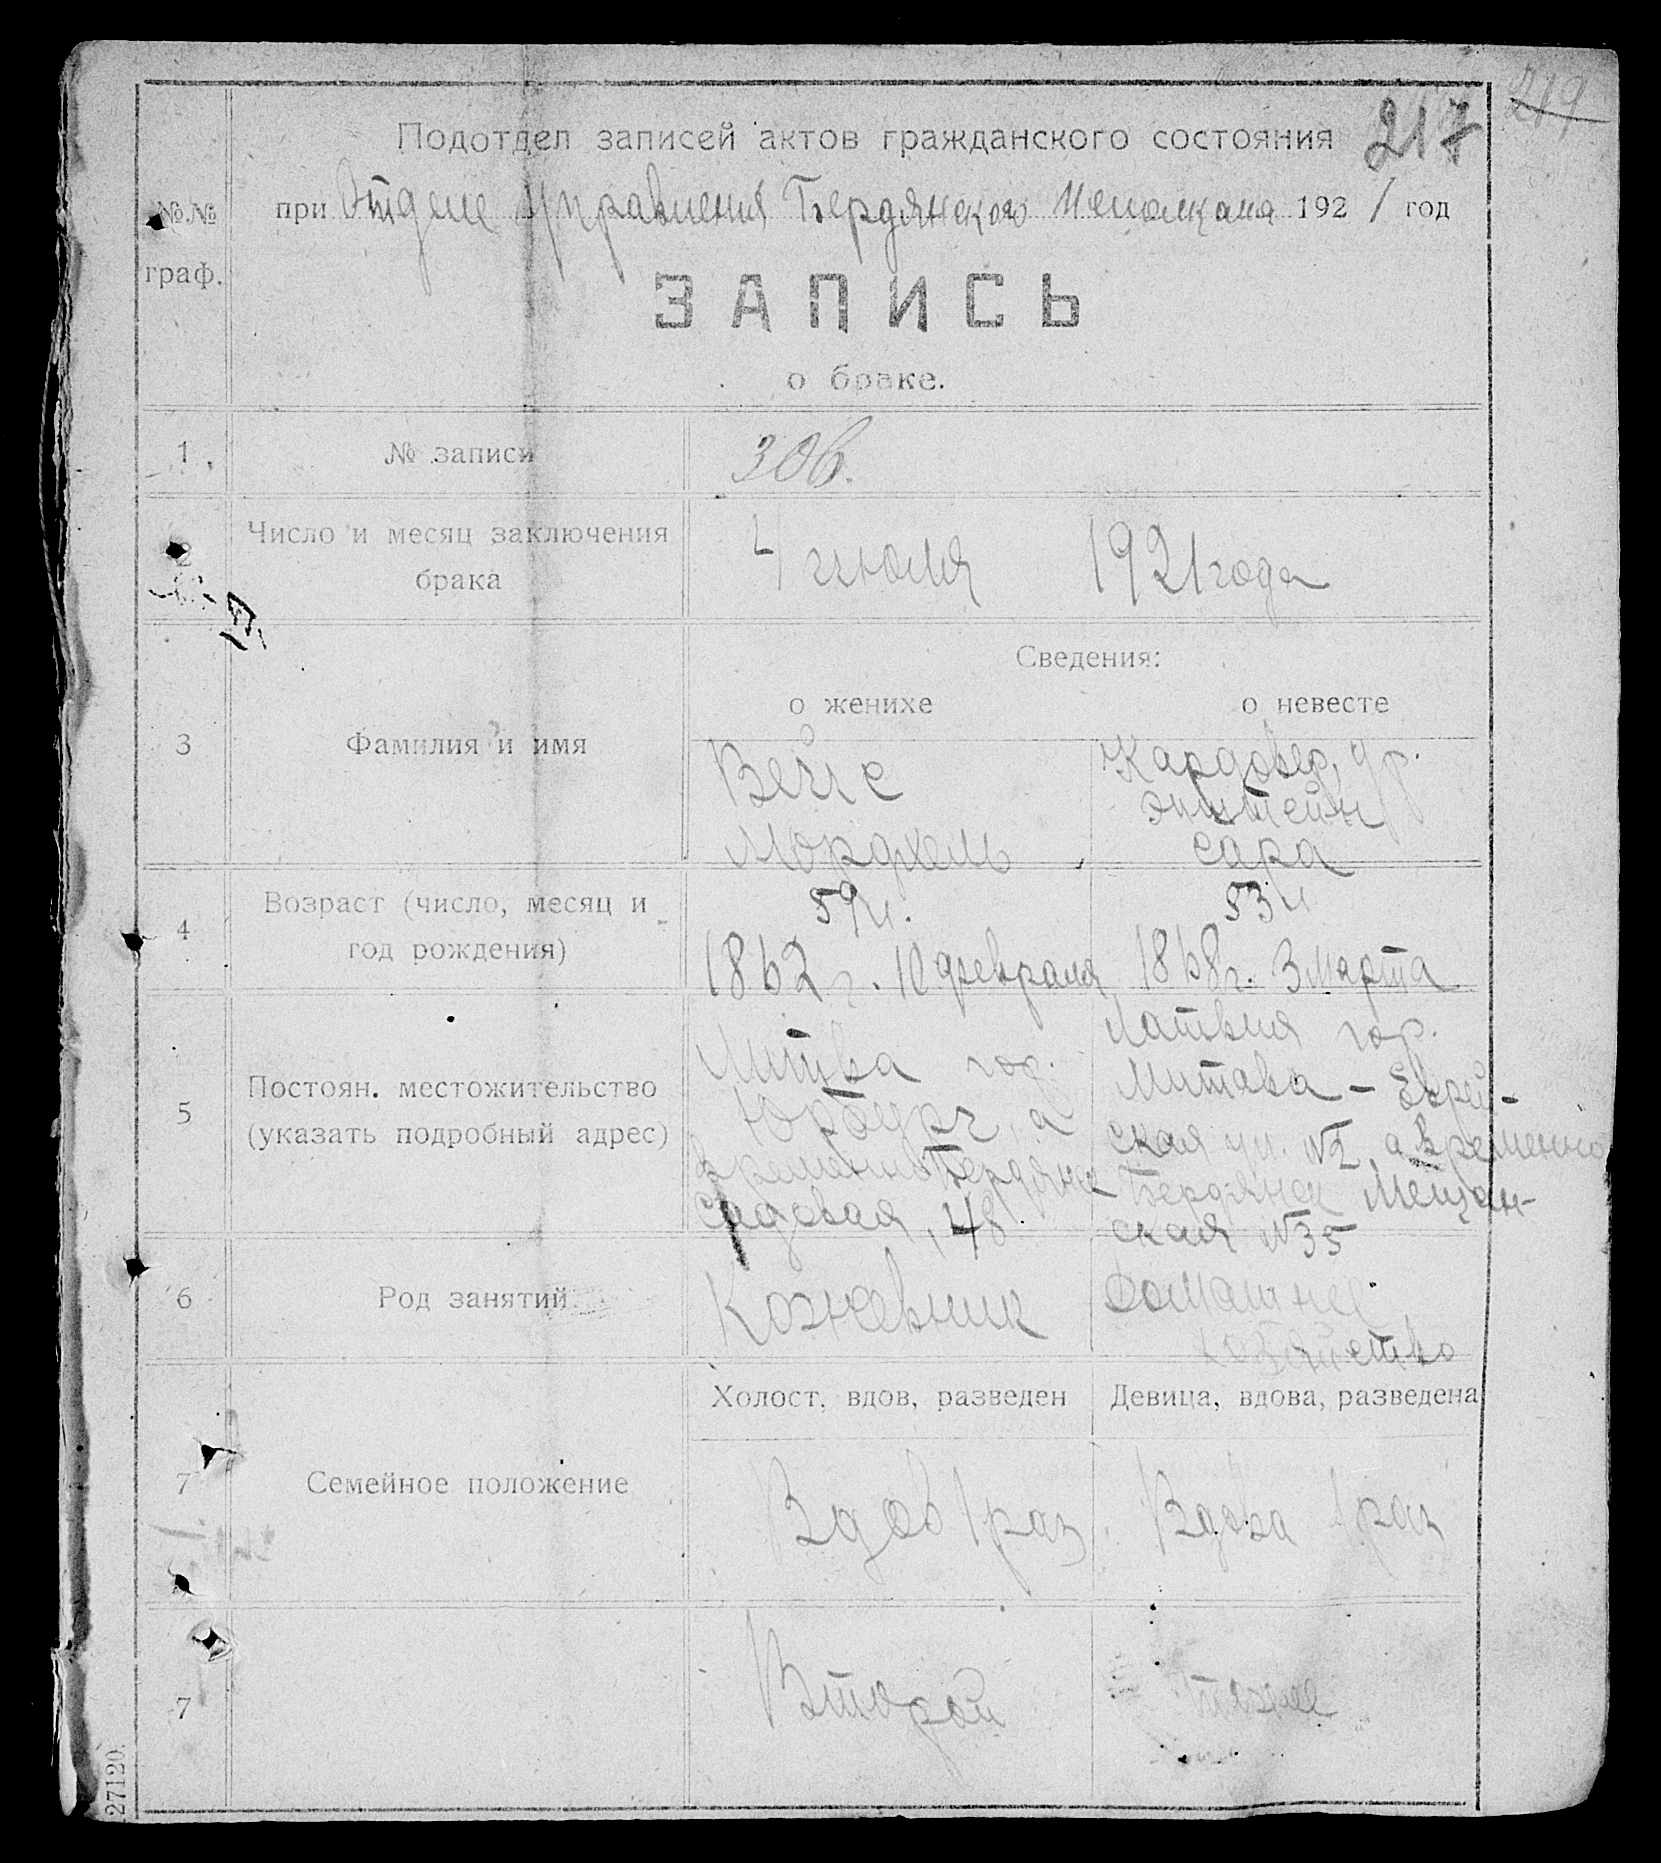 219
217
Подотдел записей актов гражданского состояния
при Отделе Управления Бердянского Исполкома 1921 год
№.№
граф.
ЗАПИСЬ
о браке.
1 № записи 306.
2 Число и месяц заключения брака
4 июля 1921 года
Сведения:
о женихе о невесте
3 Фамилия и имя
Вейс
Мордхель
Кардовер, ур.
Эпштейн
Сара
4 Возраст (число, месяц и
год рождения)
59 л.
1862 г. 10 февраля
53 л
1868 г. 3 марта
5 Постоян. местожительство
(указать подробный адрес)
Литва гор.
Юрбург, а
временно Бердянск
Садовая, 48
Латвия гор.
Митава – Еврей-
ская ул. №2, а временно
Бердянск Мещан-
ская №35
6 Род занятий
Кожевник
Домашнее
хозяйство
Холост, вдов, разведен Девица, вдова, разведена
7 Семейное положение
Вдов 1 раз Вдова 1 раз
7
Второй тоже
27120.